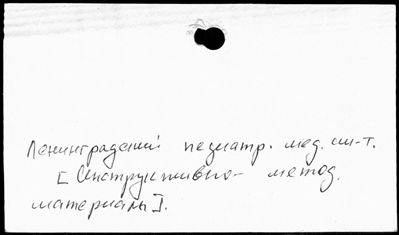 Ленинградский педиатр. мед. ин-т.
[Инструктивно- метод.
материалы].